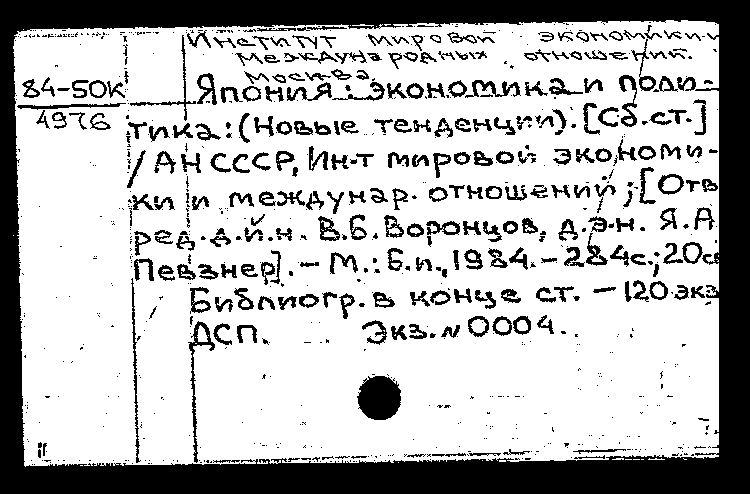 Институт мировой экономики и
международных отношений.
Москва.
84-50К
4976
Япония: экономика и поли-
тика: (Новые тенденции). [Сб.ст.]
/АН СССР, Ин-т мировой экономи-
ки и междунар. отношений; [Отв
ред. д.и.н. В.Б. Воронцов, д.э.н. Я.А
Певзнер]. – М.: Б.и., 1984. – 284с.; 20см
Библиогр. в конце ст. – 120 экз
ДСП. Экз. № 0004.